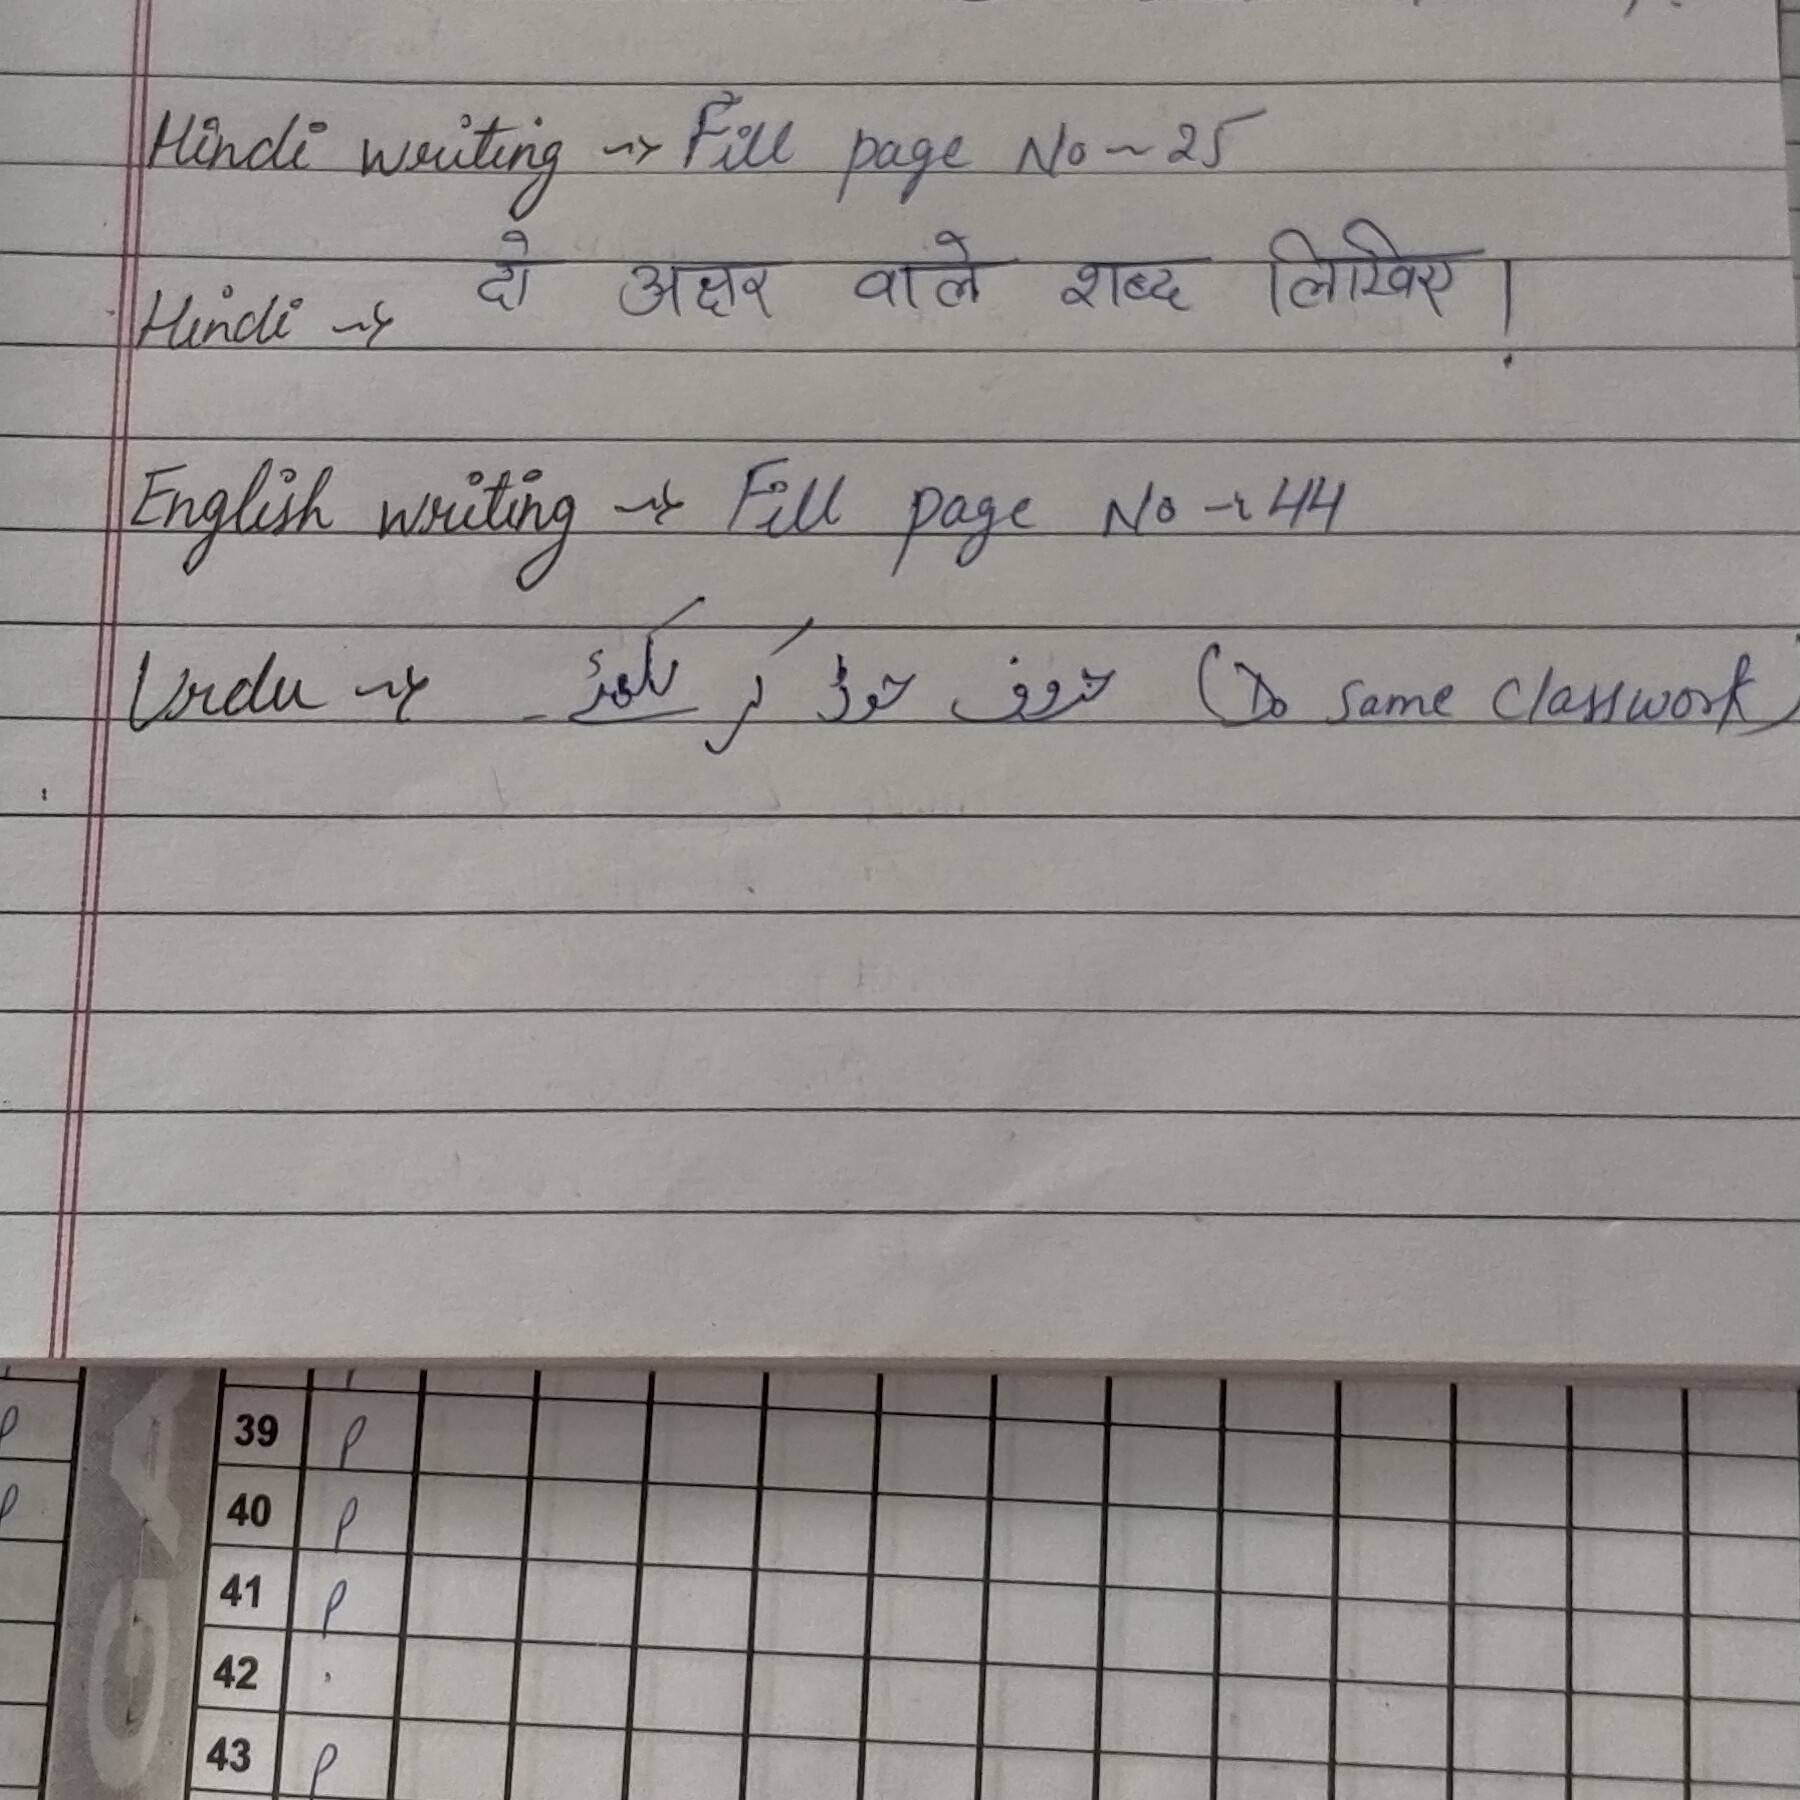 Hindi writing → Fill page No ~ 25
Hindi → दो अक्षर वाले शब्द लिखिए।
English writing → Fill page No → 44
Urdu → حروف توڑ کر (Do same classwork)
39 P
40 P
41 P
42
43 P